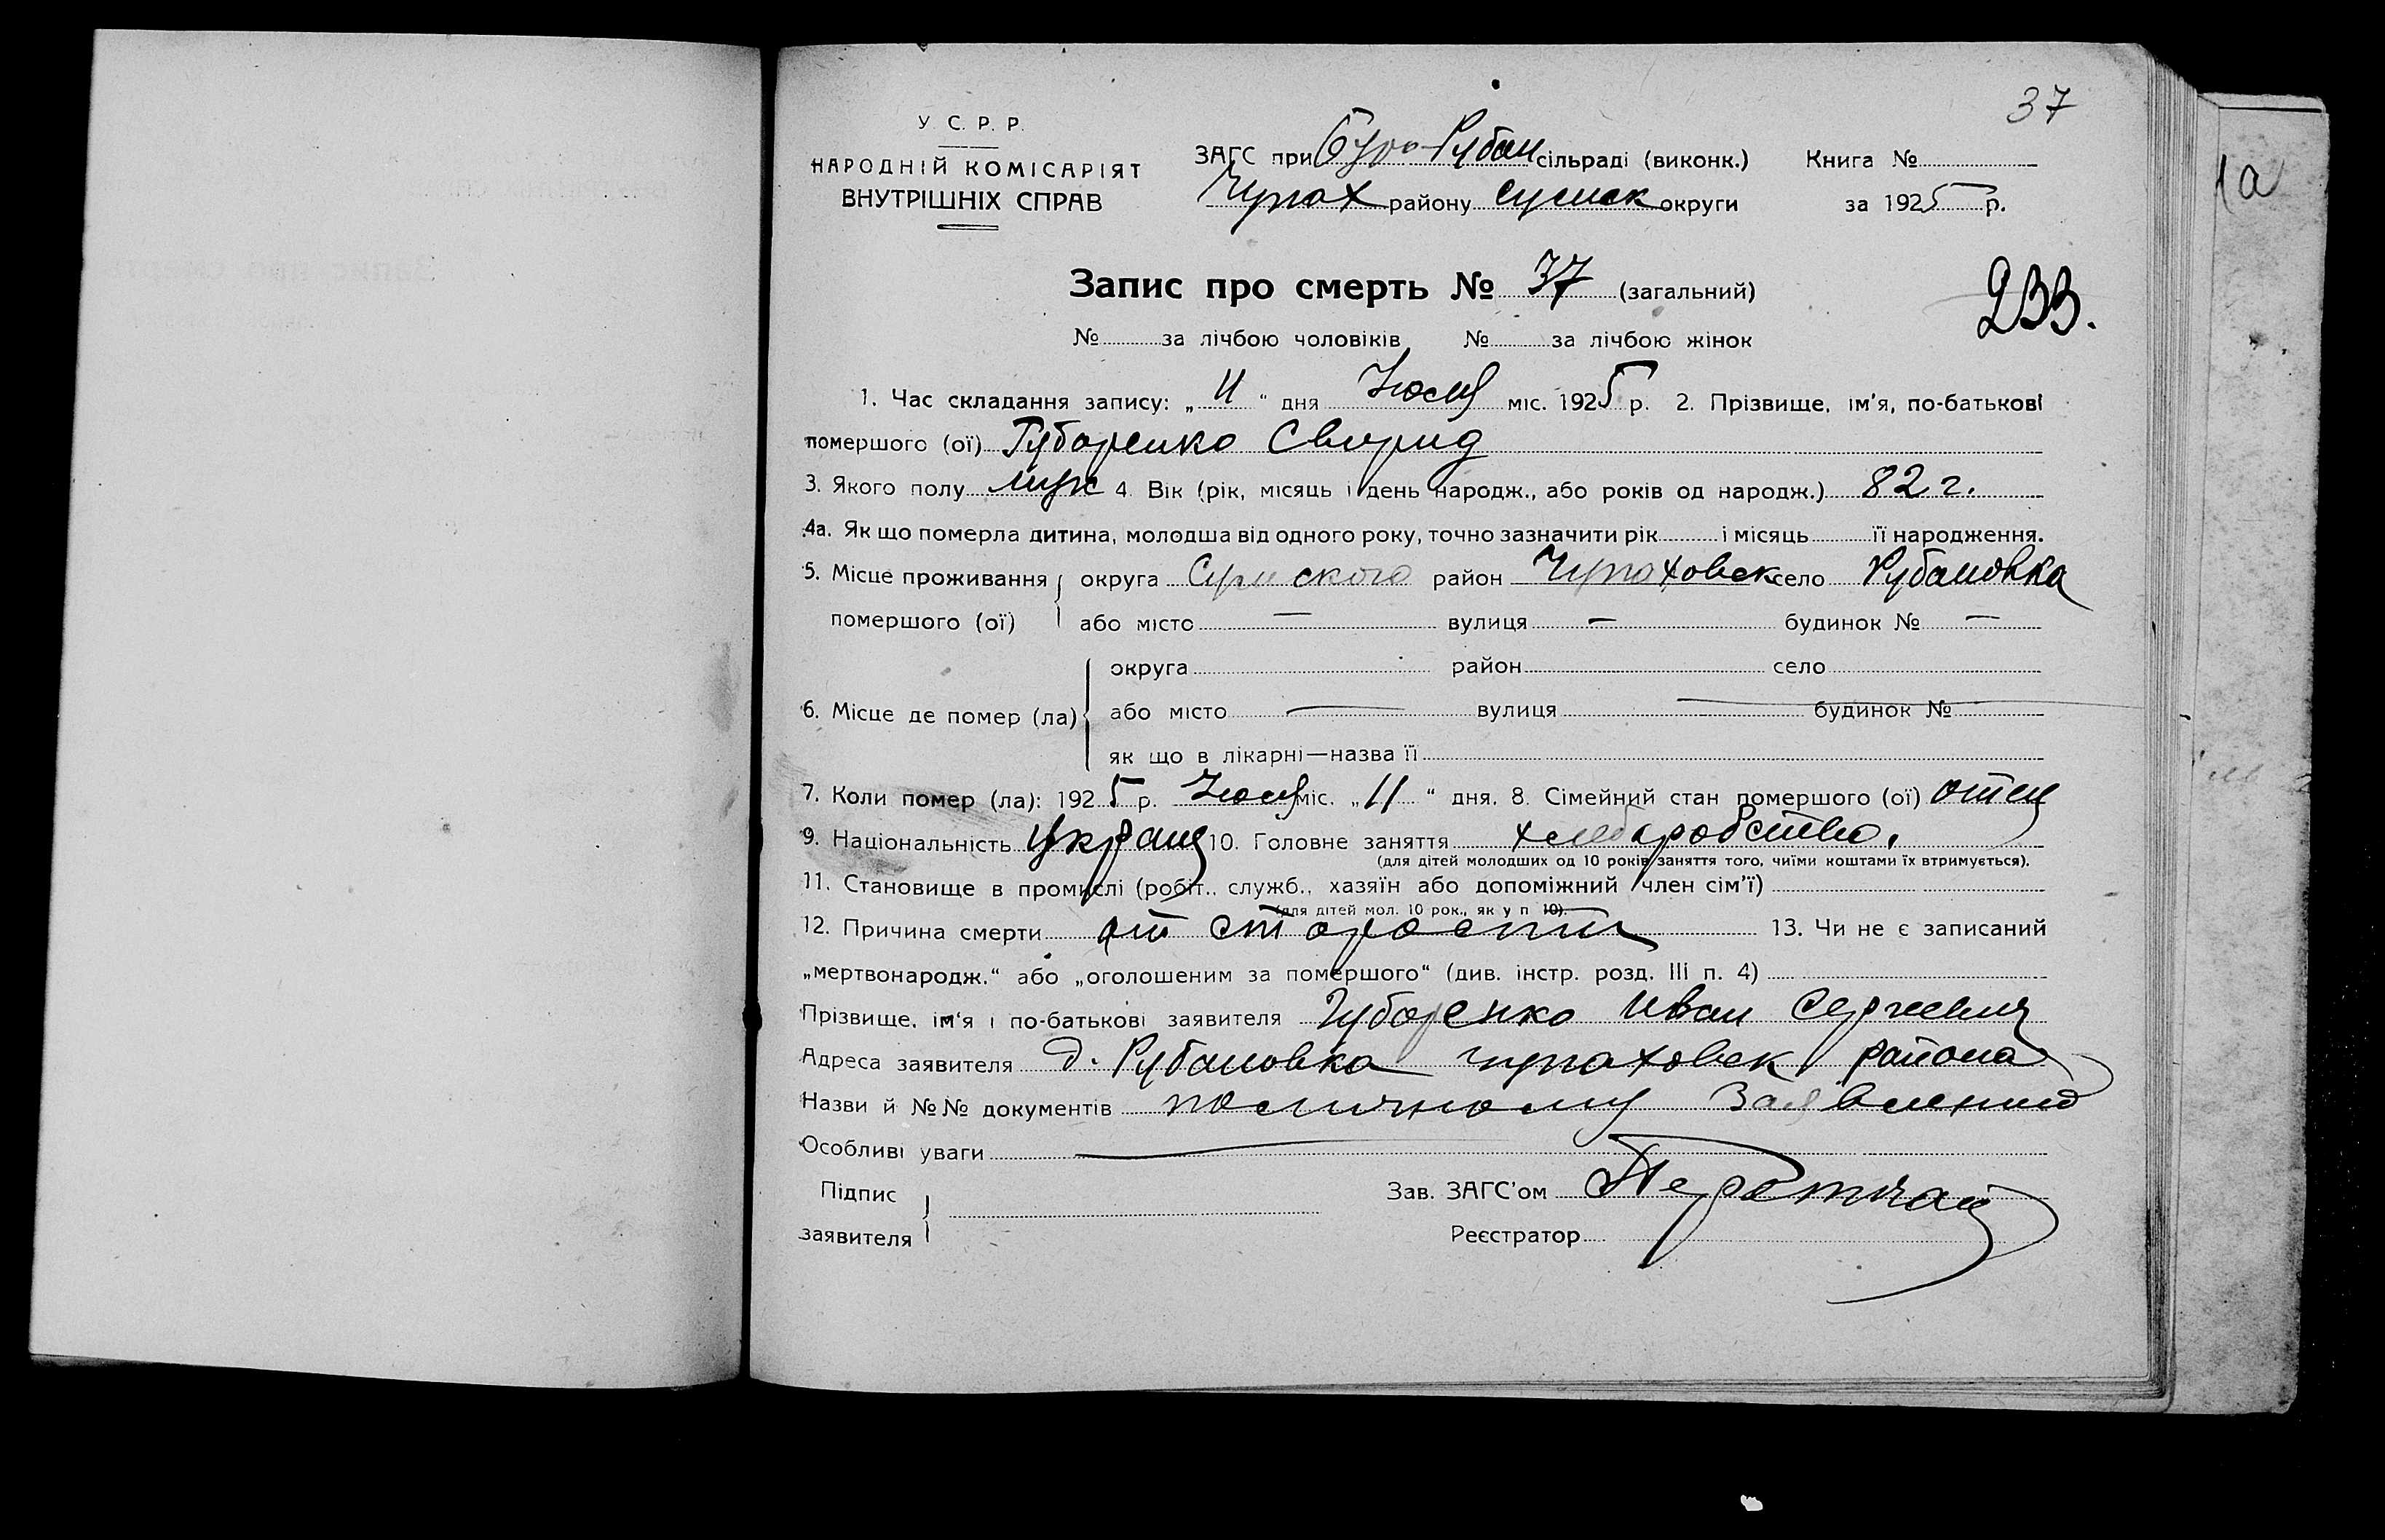 37
У. С. Р. Р.
НАРОДНІЙ КОМІСАРІЯТ
ВНУТРІШНІХ СПРАВ
ЗАГС при Рубан сільраді (виконк.) Книга №
Чупах району Сумск округи за 1925 р.
1а
Запис про смерть № 37 (загальний)
233.
№ за лічбою чоловіків № за лічбою жінок
1. Час складання запису: „ 11 “ дня Июля міс. 1925 р. 2. Прізвище, ім'я, по-батькові
помершого (ої) Губаренко Свирид
3. Якого полу муж 4. Вік (рік, місяць і день народж., або років од народж.) 82 г.
4а. Як що померла дитина, молодша від одного року, точно зазначити рік і місяць її народження.
5. Місце проживання округа Сумского район Чупаховск село Рубановка
помершого (ої) або місто — вулиця — будинок № —
округа район село
6. Місце де помер (ла) або місто — вулиця — будинок №
як що в лікарні—назва її
7. Коли помер (ла): 1925 р. Июля міс. „ 11 “ дня. 8. Сімейний стан помершого (ої) отец
9. Національність 10. Головне заняття хлеборобство.
(для дітей молодших од 10 років заняття того, чиїми коштами їх втримується).
11. Становище в промислі (робіт., служб., хазяїн або допоміжний член сім'ї)
(для дітей мол. 10 рок., як у п 10).
12. Причина смерти от старости 13. Чи не є записаний
„мертвонародж.“ або „оголошеним за помершого“ (див. інстр. розд. III п. 4)
Прізвище, ім'я і по-батькові заявителя Губаренко Иван Сергеевич
Адреса заявителя д. Рубановка Чупаховск района
Назви й №№ документів по личному заявлению
Особливі уваги —
Підпис Зав. ЗАГС'ом
заявителя Реєстратор